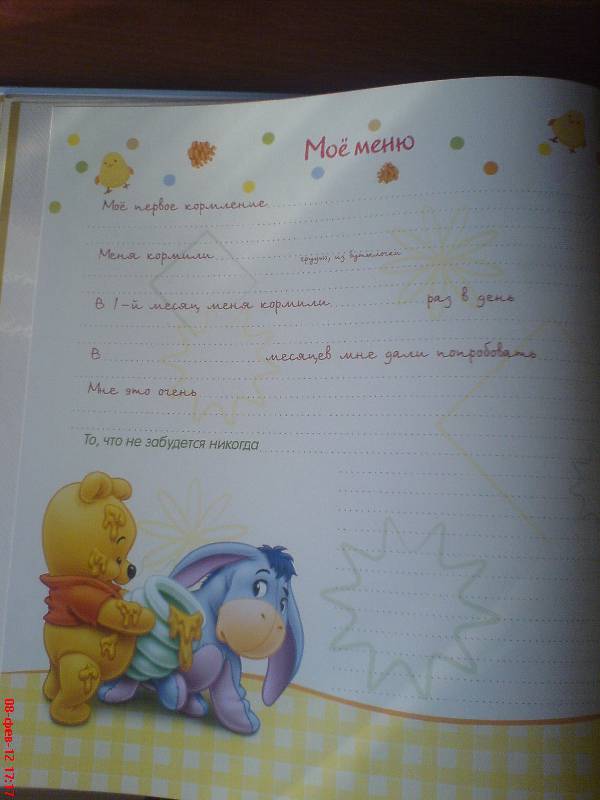 Моё меню
Моё первое кормление
Меня кормили
грудью, из бутылочки
В 1-й месяц меня кормили раз в день
В месяцев мне дали попробовать
Мне это очень
То, что не забудется никогда
08-фев-12 17:17